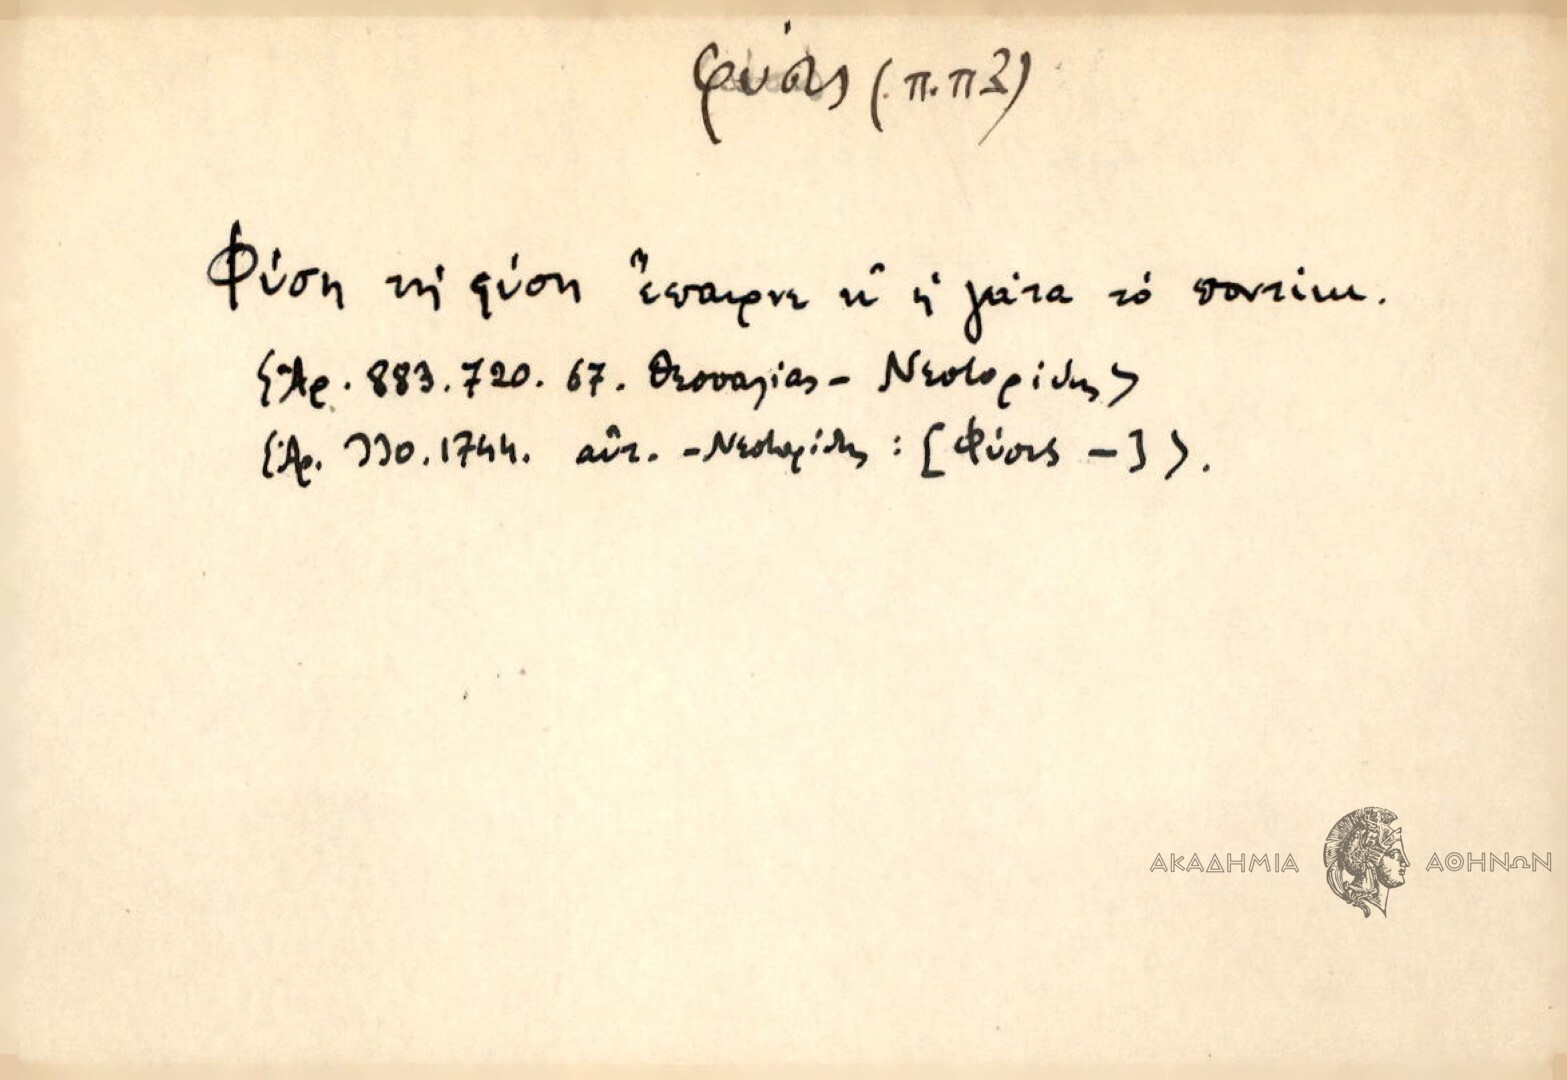 φύσις (π.π3)
Φύση τή φύση ἔπαιρνε κ' ἡ γάτα τό ποντίκι.
{Ἀρ. 883.720.67. Θεσσαλίας - Νεστορίδης}
{Ἀρ. 1744. αὐτ. - Νεστορίδης : [Φύσις -] }.
ΑΚΑΔΗΜΙΑ ΑΘΗΝΩΝ